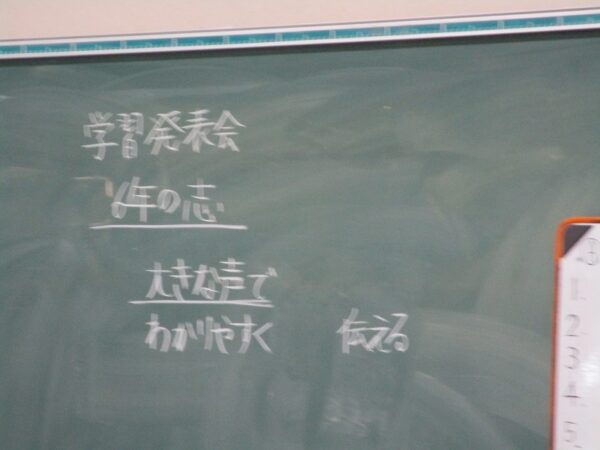 学習発表会
6年の志
大きな声で
わかりやすく 伝える
1.
2.
3.
4.
5.